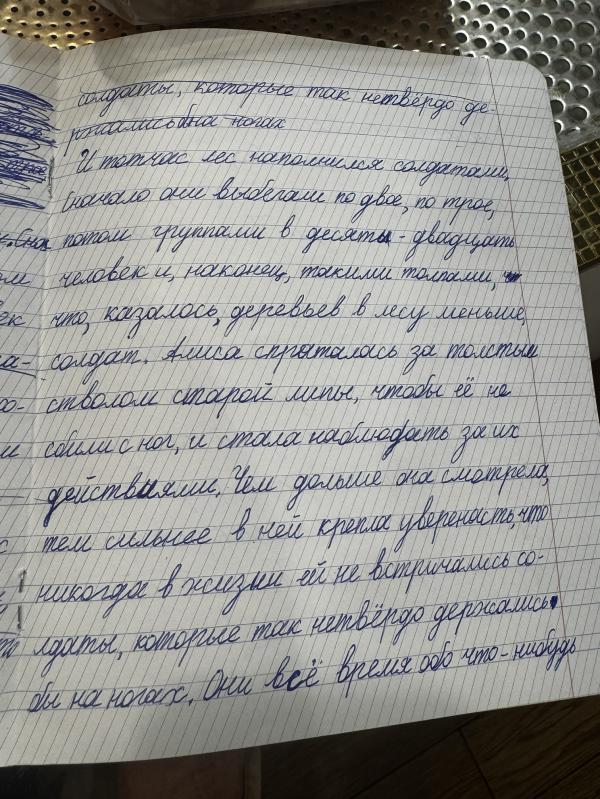 солдаты, которые так нетвёрдо де-
ржались бы на ногах
И тотчас лес наполнился солдатами,
Сначало они выбегали по двое, по трое,
потом группами в десяты-двадцать
человек и, наконец, такими толпами,
что, казалось, деревьев в лесу меньше,
солдат. Алиса спряталась за толстым
стволом старой липы, чтобы её не
сбили с ног, и стала наблюдать за их
действиями. Чем дольше она смотрела,
тем сильнее в ней крепла увереность, что
никогда в жизни ей не встричались со-
лдаты, которые так нетвёрдо держались
бы на ногах. Они всё время обо что-нибудь